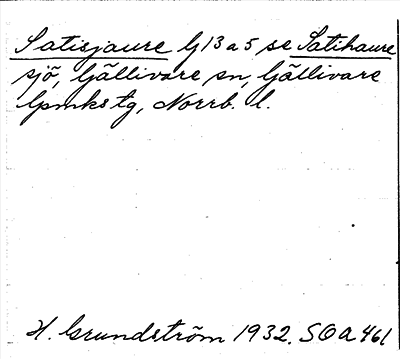 Satisjaure lj 13 a 5 se Satihaure
sjö, Gällivare sn, Gällivare
lpmks tg, Norrb. l.
H. Grundström 1932. SOA 461